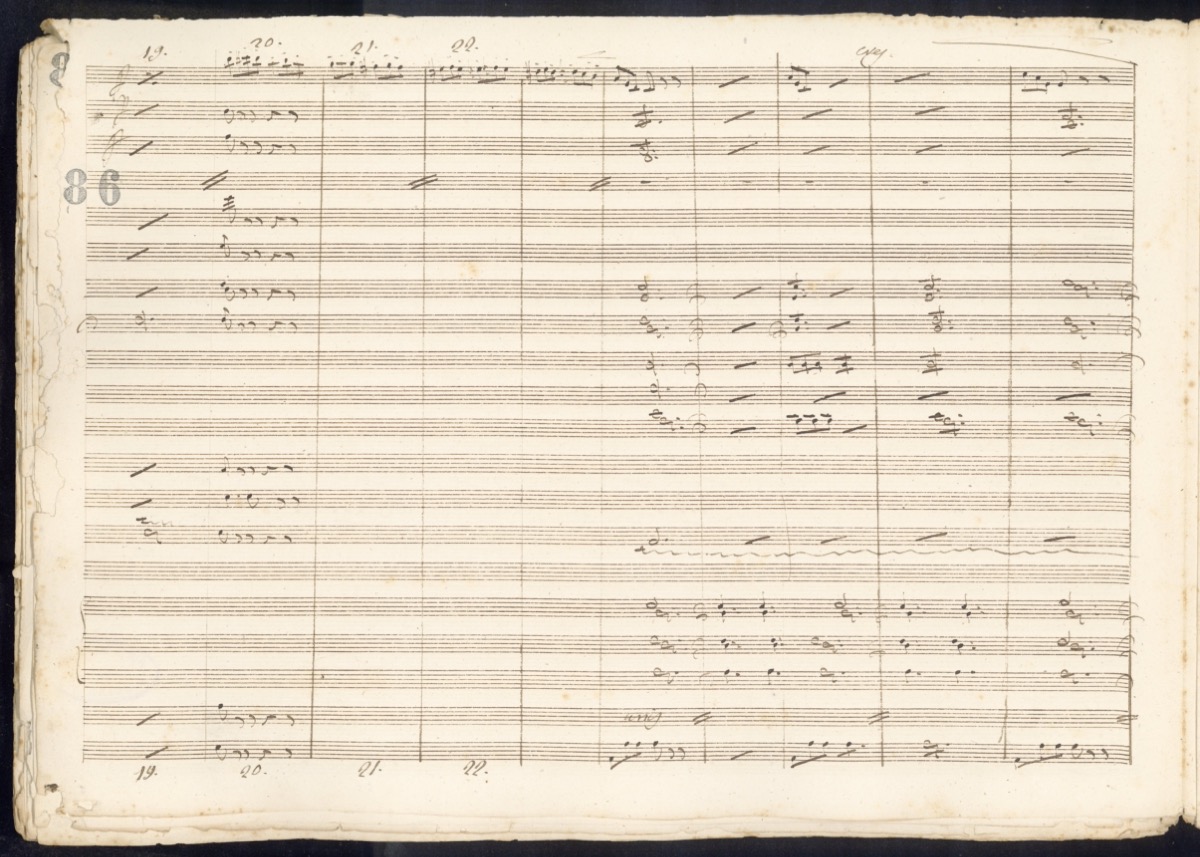 19. 20. 21. 22.
86
unis
19. 20. 21. 22.